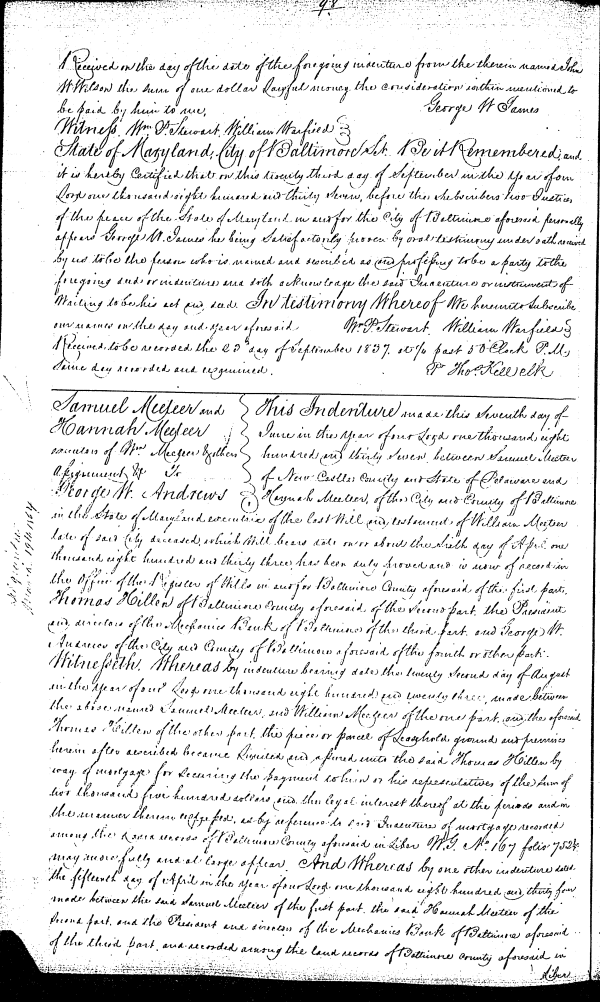 98
Received on the day of the date of the foregoing indenture from the therein named John
W Wilson the sum of one dollar Lawful money the consideration within mentioned to
be paid by him to me. George W James
Witness, Wm P. Stewart, William Warfield
State of Maryland, City of Baltimore Sct. Be it Remembered, and
it is hereby Certified that on this twenty third day of September in the year of our
Lord one thousand eight hundred and thirty seven, before the subscribers two Justices
of the peace of the State of Maryland in and for the City of Baltimore aforesaid personally
appears George W. James he being Satisfactorily proven by oral testimony under oath received
by us to be the person who is named and described as and professing to be a party to the
foregoing deed or indenture and doth acknowledge the said Indenture or instrument of
Writing to be his act and deed. In testimony Whereof We hereunto subscribe
our names on the day and year aforesaid. Wm P. Stewart, William Warfield
Received to be recorded the 23d day of September 1837. at ½ past 5 O Clock P.M.
Same day recorded and examined. Pr Thos Kell clk
Samuel Meeteer and
Hannah Meeteer
executors of Wm Meeteer & others
Assignment & To
George W. Andrews
This Indenture made this Seventh day of
June in the year of our Lord one thousand eight
hundred and thirty seven, between Samuel Meeteer
of New Castle County and State of Delaware and
Hannah Meeteer, of the City and County of Baltimore
in the State of Maryland executrix of the last Will and testament of William Meeteer
late of said City deceased, which Will bears date on or about the sixth day of April one
thousand eight hundred and thirty three, has been duly proved and is now of record in
the Office of the Register of Wills in and for Baltimore County aforesaid of the first part,
Thomas Hillen of Baltimore County aforesaid of the second part, the President
and directors of the Mechanics Bank of Baltimore of the third part, and George W.
Andrews of the City and County of Baltimore aforesaid of the fourth or other part.
Witnesseth. Whereas by indenture bearing date the twenty Second day of August
in the year of our Lord one thousand eight hundred and twenty three, made between
the above named Samuel Meeteer, and William Meeteer of the one part, and the aforesaid
Thomas Hillen of the other part, the piece or parcel of Leasehold ground and premises
herein after described became limited and assured unto the said Thomas Hillen by
way of mortgage for securing the payment to him or his representatives of the sum of
two thousand five hundred dollars and the legal interest thereof at the periods and in
the manner therein expressed, as by reference to said Indenture of mortgage recorded
among the Land records of Baltimore County aforesaid in Liber W.G. No. 167 folio 752 &c
may more fully and at large appear. And Whereas by one other indenture dated
the fifteenth day of April in the year of our Lord one thousand eight hundred and thirty four
made between the said Samuel Meeteer of the first part, the said Hannah Meeteer of the
second part, and the President and directors of the Mechanics Bank of Baltimore aforesaid
of the third part, and recorded among the land records of Baltimore County aforesaid in
Liber